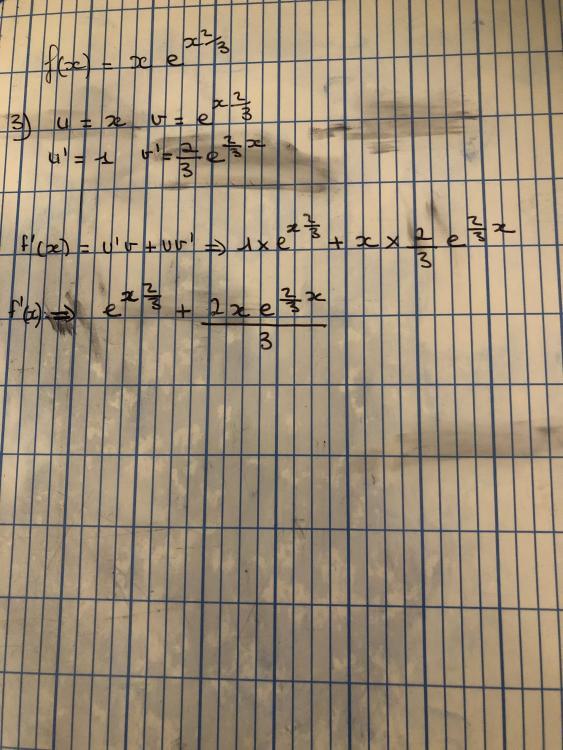 f(x) = x e^{x^{2/3}}
3) u = x v = e^{x\frac{2}{3}}
u' = 1 v' = \frac{2}{3} e^{\frac{2}{3}x}
f'(x) = u'v + uv' ⇒ 1 × e^{x\frac{2}{3}} + x × \frac{2}{3} e^{\frac{2}{3}x}
f'(x) ⇒ e^{x\frac{2}{3}} + \frac{2x e^{\frac{2}{3}x}}{3}